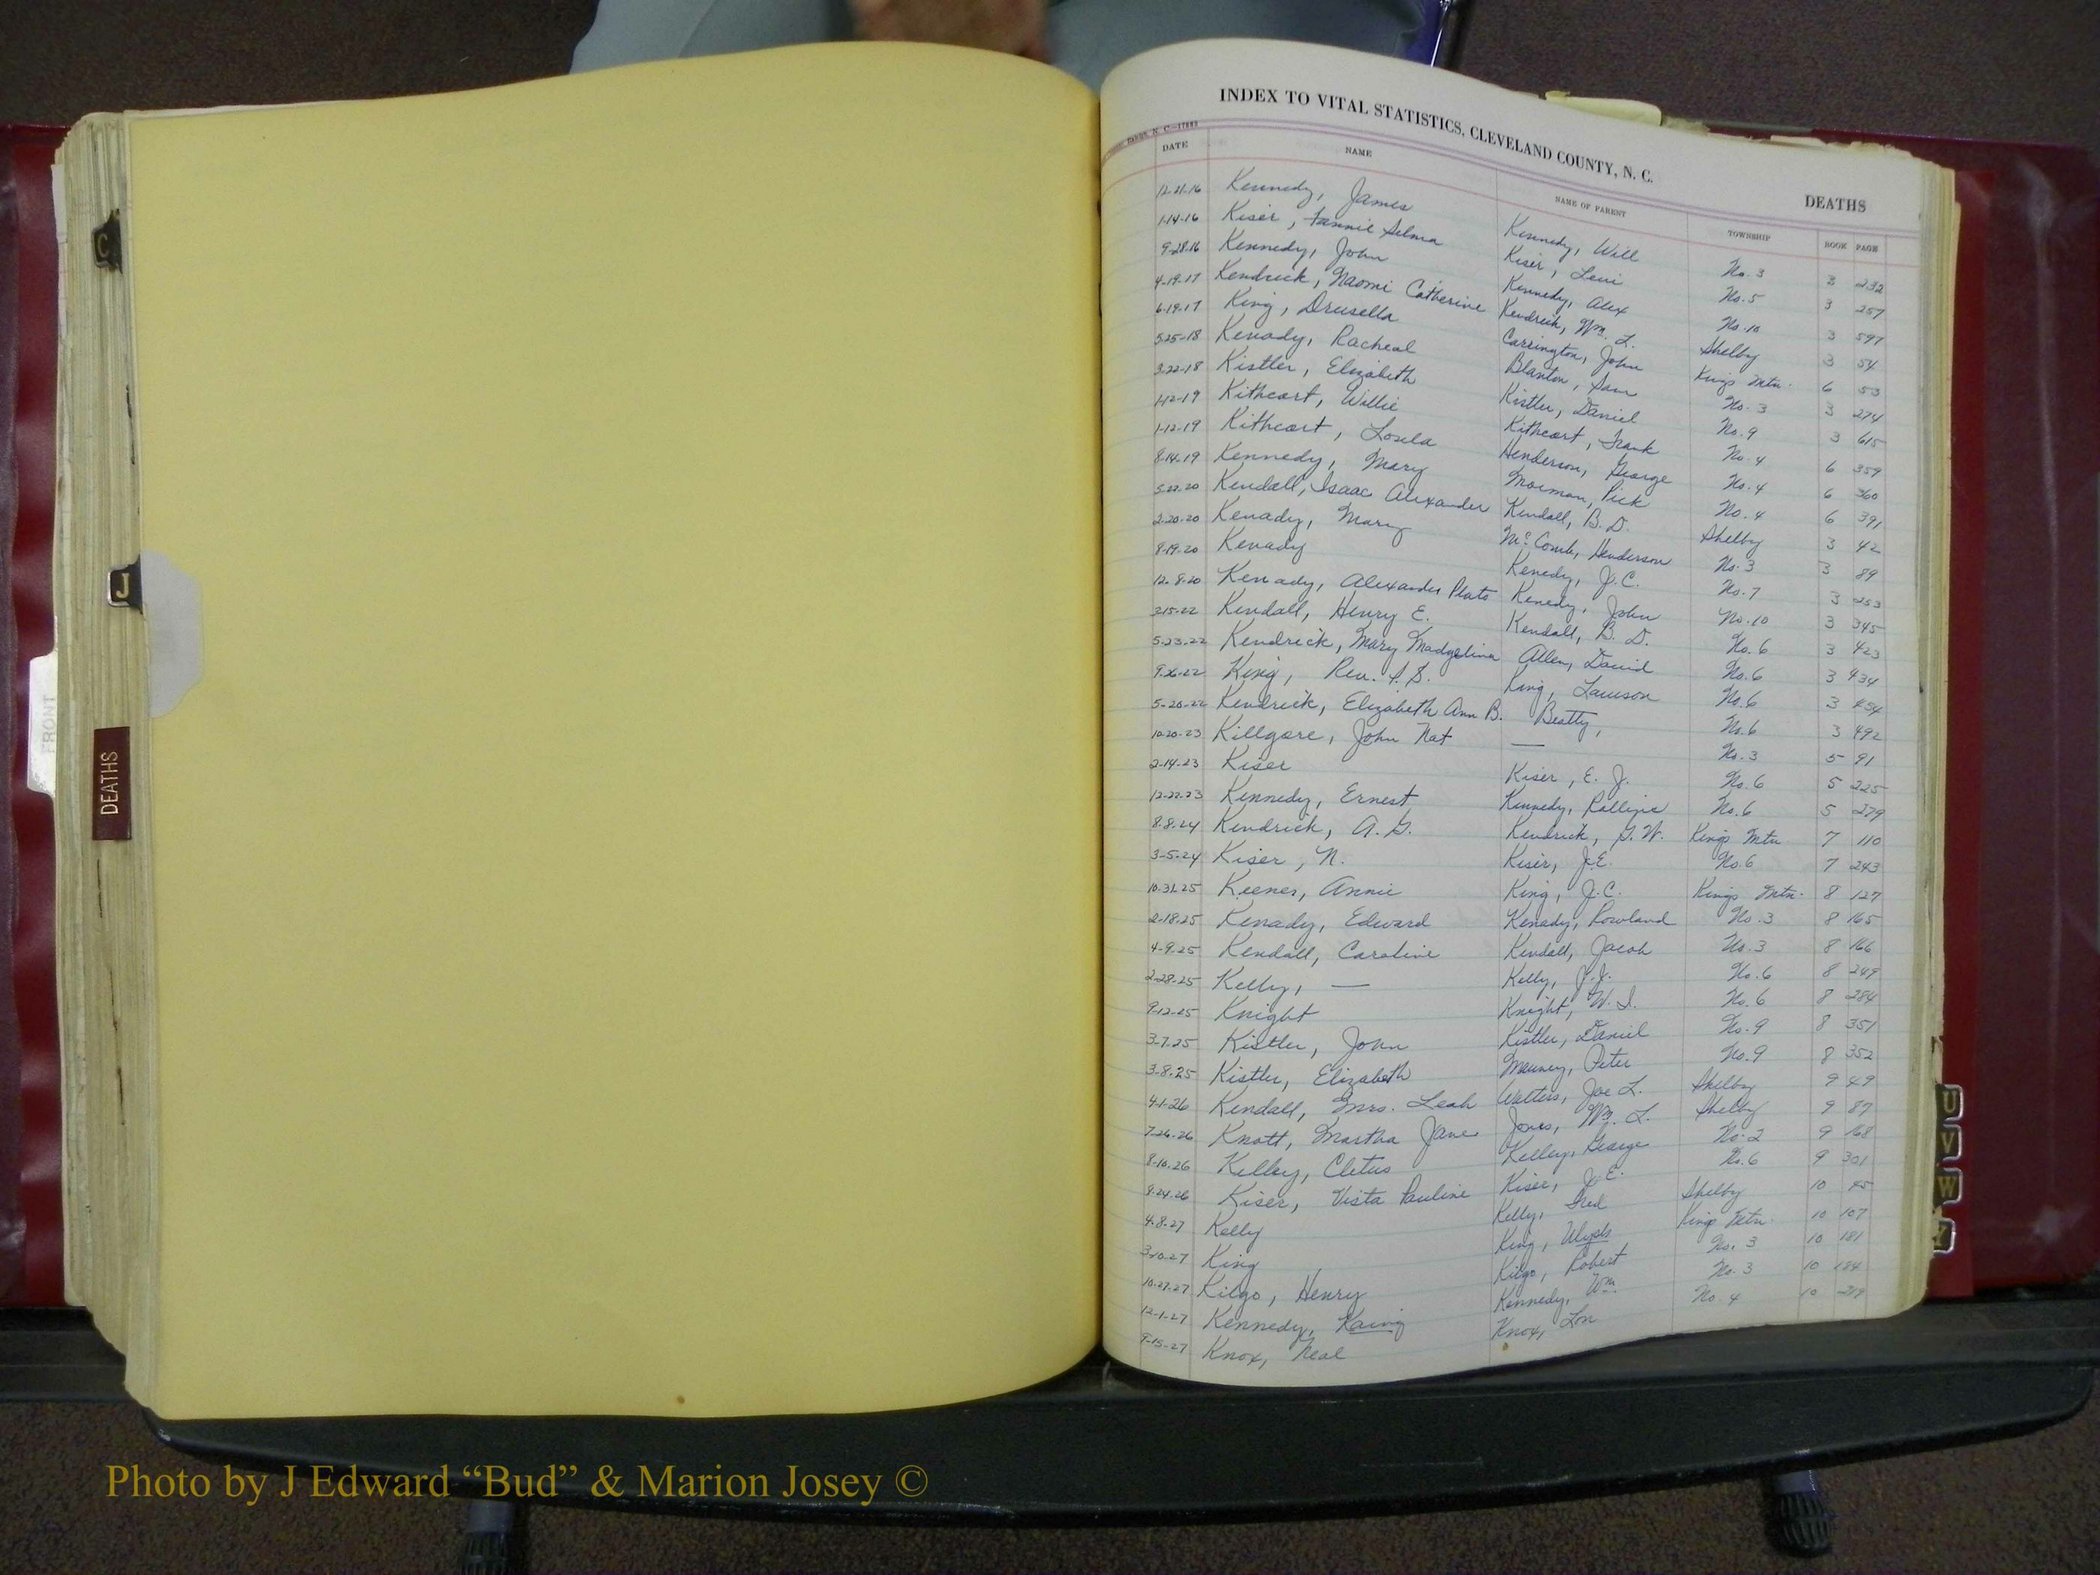 INDEX TO VITAL STATISTICS, CLEVELAND COUNTY, N. C.
DEATHS
DATE NAME NAME OF PARENT TOWNSHIP BOOK PAGE
12-21-16 Kennedy, James Kennedy, Will No. 3 3 232
1-14-16 Kiser, Fannie Selma Kiser, Levi No. 5 3 257
9-28-16 Kennedy, John Kennedy, Alex No. 10 3 597
4-19-17 Kendrick, Naomi Catherine Kendrick, Wm. L. Shelby 3 54
6-19-17 King, Drusella Carrington, John Kings Mtn. 6 53
5-25-18 Kenady, Racheal Blanton, Sam No. 3 3 274
3-22-18 Kistler, Elizabeth Kistler, Daniel No. 9 3 615
1-12-19 Kithcart, Willie Kithcart, Frank No. 4 6 359
1-12-19 Kithcart, Loula Henderson, George No. 4 6 360
8-14-19 Kennedy, Mary Morman, Pick No. 4 6 391
5-22-20 Kendall, Isaac Alexander Kendall, B. D. Shelby 3 42
2-20-20 Kenady, Mary McComb, Henderson No. 3 3 89
8-19-20 Kenady Kenedy, J. C. No. 7 3 253
12-8-20 Kenady, Alexander Plato Kenedy, John No. 10 3 345
2-15-22 Kendall, Henry E. Kendall, B. D. No. 6 3 423
5-23-22 Kendrick, Mary Allen, David No. 6 3 434
9-26-22 King, Rev. King, Lawson No. 6 3 454
5-20-22 Kendrick, Elizabeth Ann B. Beatty, No. 6 3 492
10-20-23 Killgore, John Nat — No. 3 5 91
2-14-23 Kiser Kiser, E. J. No. 6 5 225
12-22-23 Kennedy, Ernest Kennedy, No. 6 5 279
8-8-24 Kendrick, A. G. Kendrick, G. W. Kings Mtn 7 110
3-5-24 Kiser, N. Kiser, J. E. No. 6 7 243
10-31-25 Keener, Annie King, J. C. Kings Mtn. 8 127
2-18-25 Kenady, Edward Kenady, Rowland No. 3 8 165
4-9-25 Kendall, Caroline Kendall, Jacob No. 3 8 166
2-28-25 Kelly, — Kelly, J. J. No. 6 8 249
9-12-25 Knight Knight, W. I. No. 6 8 284
3-7-25 Kistler, John Kistler, Daniel No. 9 8 351
3-8-25 Kistler, Elizabeth Mauney, Peter No. 9 8 352
4-1-26 Kendall, Mrs. Leah Watters, Joe L. Shelby 9 49
7-26-26 Knott, Martha Jane Jones, Wm. L. Shelby 9 87
8-10-26 Kelley, Cletus Kelley, George No. 2 9 168
8-24-26 Kiser, Vista Pauline Kiser, J. E. No. 6 9 301
4-8-27 Kelly Kelly, Fred Shelby 10 45
3-10-27 King King, Ulyss Kings Mtn. 10 107
10-27-27 Kilgo, Henry Kilgo, Robert No. 3 10 181
12-1-27 Kennedy, Kennedy, Wm. No. 3 10 184
9-15-27 Knox, Neal Knox, Lon No. 4 10 219
C
J
FRONT
DEATHS
U
V
W
Photo by J Edward “Bud” & Marion Josey ©